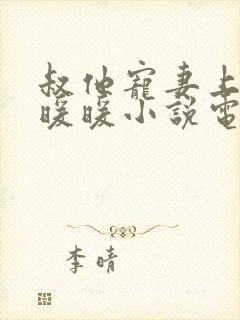 叔他寵妻上
暖暖小說電
李晴